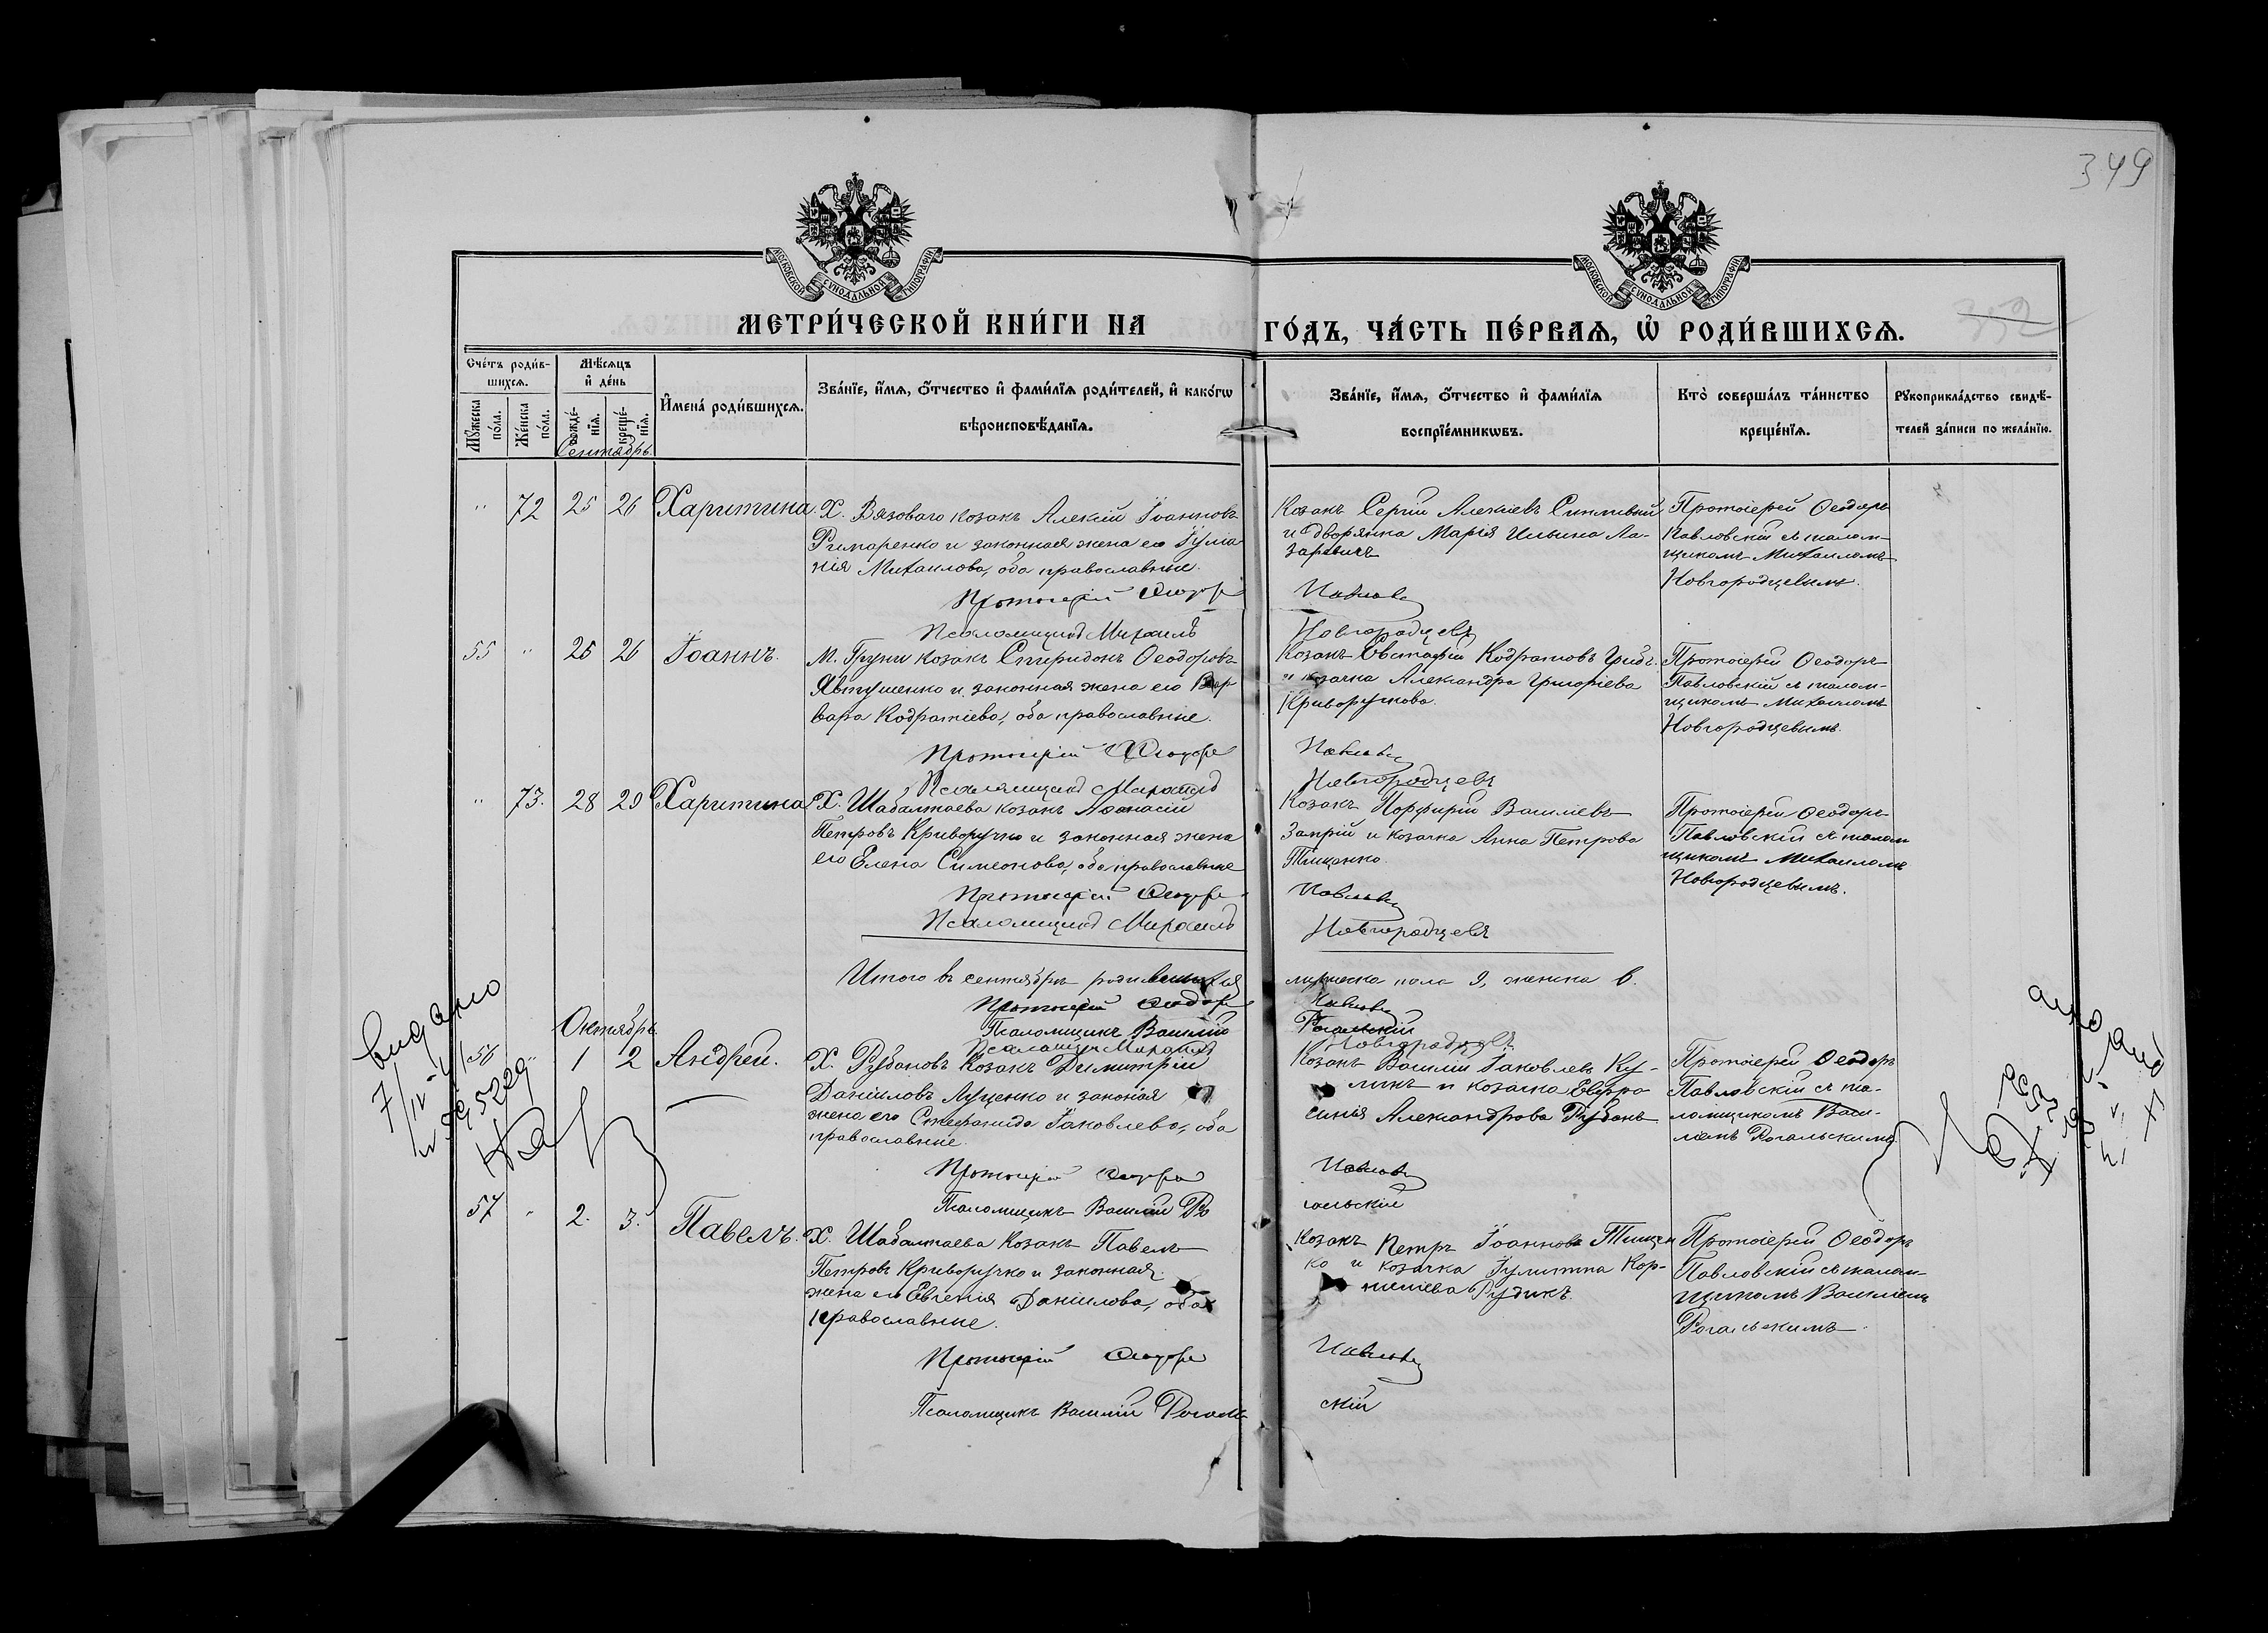 349
МОСКОВСКОЙ СУНОДАЛЬНОЙ ТИПОГРАФІИ
МОСКОВСКОЙ СУНОДАЛЬНОЙ ТИПОГРАФІИ
352
МЕТРИ́ЧЕСКОЙ КНИ́ГИ НА
ГО́ДЪ, ЧА́СТЬ ПЕ́РВАѦ, Ѡ҆ РОДИ́ВШИХСѦ.
Сче́тъ роди́в-
шихсѧ.
Мѣ́сѧцъ
и҆ де́нь
И҆мена̀ роди́вшихсѧ.
Зва́нїе, и҆́мѧ, ѻ҆́тчество и҆ фами́лїѧ роди́телей, и҆ како́гѡ
вѣроисповѣ́данїѧ.
Мꙋ́жеска
по́ла.
Же́нска
по́ла.
рожде́-
нїѧ.
креще́-
нїѧ.
Зва́нїе, и҆́мѧ, ѻ҆́тчество и҆ фами́лїѧ
воспрїе́мникѡвъ.
Кто̀ соверша́лъ та́инство
креще́нїѧ.
Рꙋкоприкла́дство свидѣ́-
телей за́писи по жела́нїю.
Сентябрь.
" 72 25 26 Харитина.
Х. Вязоваго козакъ Алекій Іоанновъ
Римаренко и законная жена его Іуліа
нія Михаилова, оба православные.
Протоіерей Ѳеодоръ
Псаломщикъ Михаилъ
Козакъ Сергій Алексіевъ
и дворянка Марія Ильина Ла-
заревичъ
Павловскій
Новгородцевъ
Протоіерей Ѳеодоръ
Павловскій съ псалом-
щикомъ Михаиломъ
Новгородцевымъ.
55 " 25 26 Іоаннъ.
М. Груни козакъ Спиридонъ Ѳеодоровъ
Явтушенко и законная жена его Вар
вара Кодратіева, оба православные.
Протоіерей Ѳеодоръ
Псаломщикъ Михаилъ
Козакъ Евстафій Кодратовъ
и козачка Александра Григоріева
Криворучкова.
Павловскій
Новгородцевъ
Протоіерей Ѳеодоръ
Павловскій съ псалом-
щикомъ Михаиломъ
Новгородцевымъ.
" 73. 28 29 Харитина
Х. Шабалтаева козакъ Аѳанасій
Петровъ Криворучко и законная жена
его Елена Симеонова, оба православные
Протоіерей Ѳеодоръ
Псаломщикъ Михаилъ
Козакъ Порфирій Василіевъ
Запрій и козачка Анна Петрова
Тищенко.
Павловскій
Новгородцевъ
Протоіерей Ѳеодоръ
Павловскій съ псалом
щикомъ Михаиломъ
Новгородцевымъ.
Итого въ сентябрѣ родившихся
мужеска пола 9, женска 6.
Протоіерей Ѳеодоръ
Павловскій
Псаломщикъ Василій
Рогальскій
Псаломщикъ Михаилъ
Новгородцевъ
Октябрь.
56 " 1 2 Андрей.
Х. Рубановъ Козакъ Димитрій
Даніиловъ Луценко и законная
жена его Стефанида Іаковлева, оба
православные.
Протоіерей Ѳеодоръ
Псаломщикъ Василій Ро
Козакъ Василій Іаковлевъ Ку-
ликъ и козачка Евфро
синія Александрова Рубанъ
Павловскій
гальскій
Протоіерей Ѳеодоръ
Павловскій съ пса-
ломщикомъ Васи-
ліемъ Рогальскимъ.
видано
57 " 2. 3. Павелъ.
Х. Шабалтаева Козакъ Павелъ
Петровъ Криворучко и законная
жена его Евгенія Даніилова, оба
православные.
Протоіерей Ѳеодоръ
Псаломщикъ Василій Рогаль
Козакъ Петръ Іоанновъ Тищен
ко и козачка Іулитта Кор-
ниліева Рудикъ.
Павловскій
скій
Протоіерей Ѳеодоръ
Павловскій съ псалом-
щикомъ Василіемъ
Рогальскимъ.